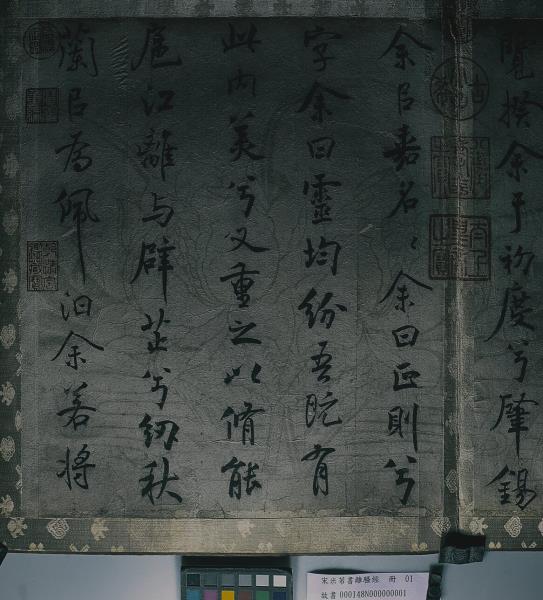 覽揆余于初度兮肇錫
余㠯嘉名〻余曰正則兮
字余曰靈均紛吾既有
此內美兮又重之以脩能
扈江離与辟芷兮紉秋
蘭㠯為佩汩余若將
宋米芾書離騷經 冊 01
故書000148N000000001